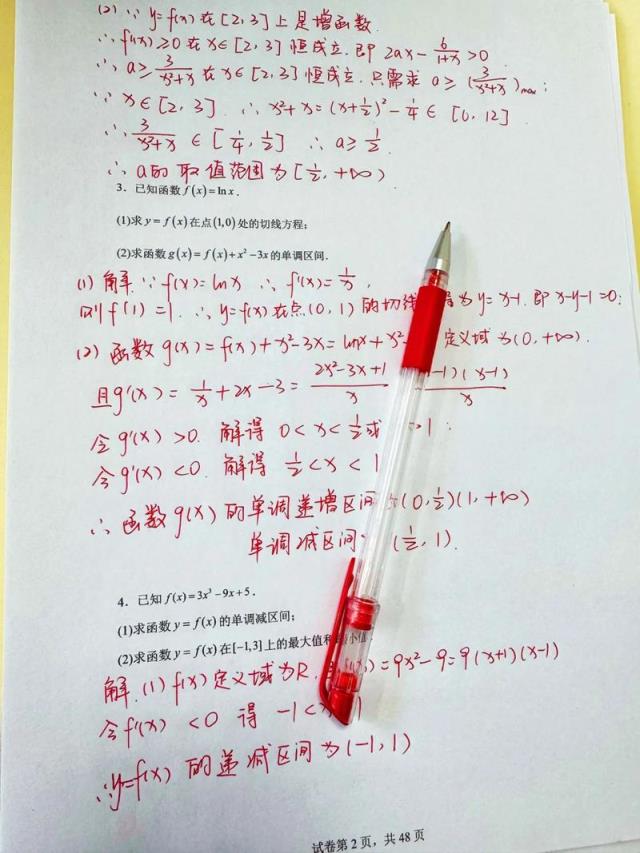 (2) ∵ y=f(x)在[2,3]上是增函数.
∴ f'(x)≥0在x∈[2,3]恒成立.即 2ax-6/(1+x)>0
∴ a≥3/(x²+x)在x∈[2,3]恒成立.只需求 a≥(3/(x²+x))max;
∵ x∈[2,3]. ∴ x²+x=(x+1/2)²-1/4∈[6,12]
∴ 3/(x²+x)∈[1/4,1/2] ∴ a≥1/2.
∴ a的取值范围为[1/2,+∞)
3. 已知函数f(x)=lnx.
(1)求y=f(x)在点(1,0)处的切线方程;
(2)求函数g(x)=f(x)+x²-3x的单调区间.
(1) 解:∵ f(x)=lnx ∴ f'(x)=1/x,
则f'(1)=1. ∴ y=f(x)在点(0,1)的切线 为y=x-1.即x-y-1=0;
(2) 函数g(x)=f(x)+x²-3x=lnx+x² 定义域为(0,+∞).
且g'(x)=1/x+2x-3=(2x²-3x+1)/x -1)(x-1)/x
令g'(x)>0. 解得 0<x<1/2或 >1;
令g'(x)<0. 解得 1/2<x<1
∴ 函数g(x)的单调递增区间 (0,1/2)(1,+∞)
单调减区间 (1/2,1).
4. 已知f(x)=3x³-9x+5.
(1)求函数y=f(x)的单调减区间;
(2)求函数y=f(x)在[-1,3]上的最大值和 小值.
解.(1) f(x)定义域为R. )=9x²-9=9(x+1)(x-1)
令f'(x)<0 得 -1< 1
∴y=f(x) 的递减区间为(-1,1)
试卷第2页,共48页